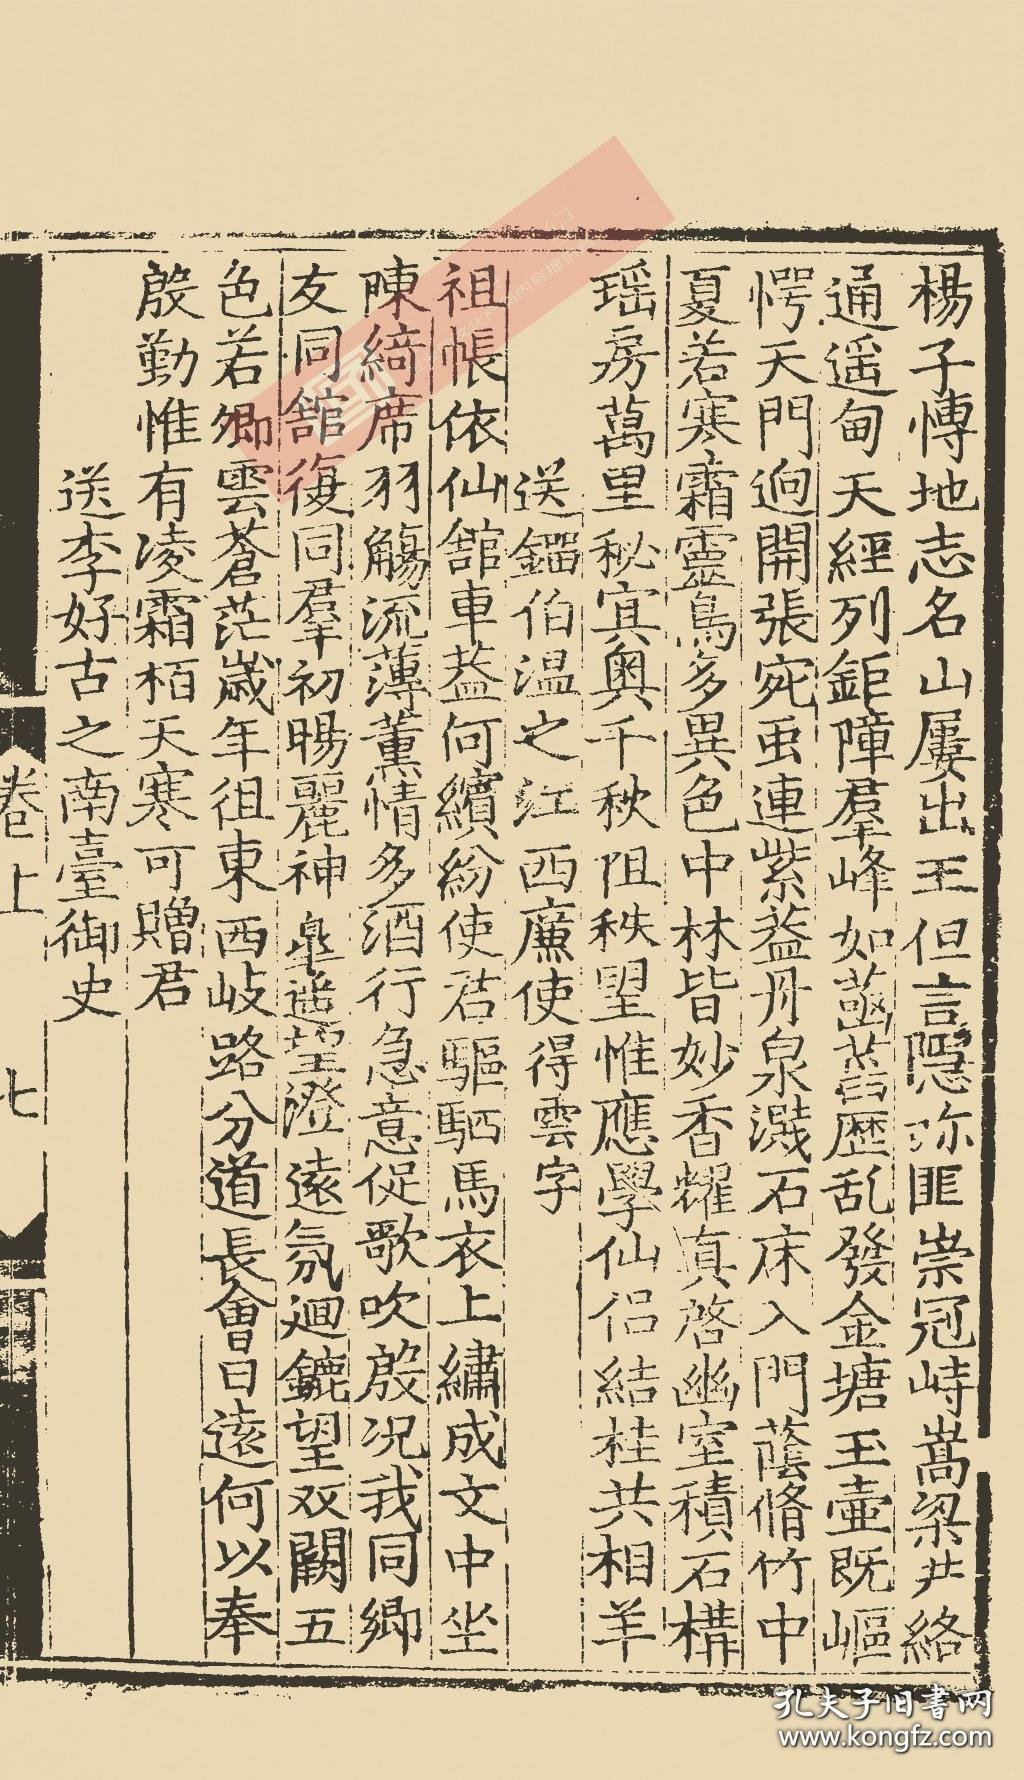 楊子愽地志名山屢出王但言隱沵匪崇冠峙嵩梁井絡
通遥甸天經列鉅障羣峰如菡萏歷乱發金塘玉壷既嶇
愕天門逈開張宛虫連紫葢丹泉濺石床入門蔭脩竹中
夏若寒霜靈鳥多異色中林皆妙香耀真啓幽室積石構
瑶房萬里秘宜奥千秋阻秩朢惟應學仙侣結桂共相羊
送鐂伯温之江西廉使得雲字
祖帳依仙舘車葢何繽紛使君驅駟馬衣上繡成文中坐
陳綺席羽觴流薄薰情多酒行急意促歌吹殷况我同卿
友同舘復同羣初暘麗神臯遥望澄遠氛迴鑣望双闕五
色若卿雲蒼茫歲年徂東西岐路分道長會日遠何以奉
殷勤惟有凌霜栢天寒可贈君
送李好古之南臺御史
卷上
七
孔夫子旧書网
www.kongfz.com